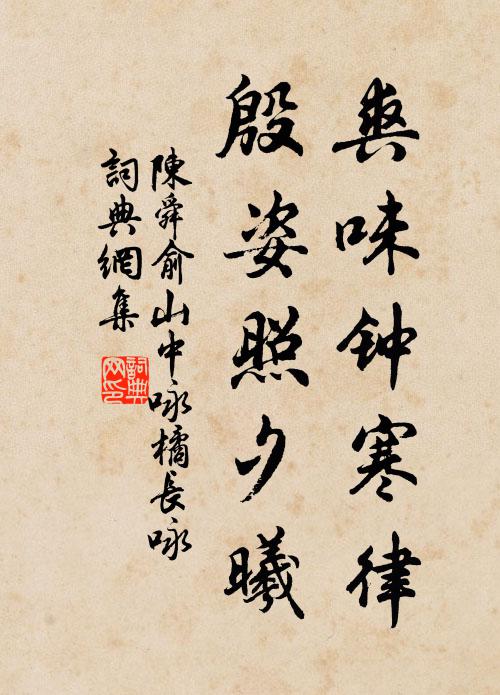 爽味钟寒律
殷姿照夕曦
陳舜俞山中咏橘長咏
詞典網集
詞典网印